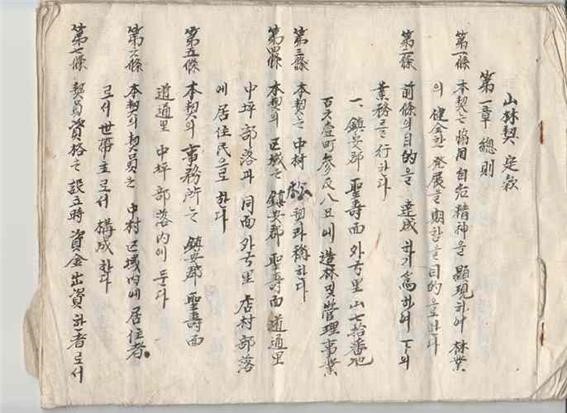 山林契 定款
第一章 總則
第一條 本契는 協同自治精神을 顯現하여 林業
의 健全한 發展을 期함을 目的으로 한다
第二條 前條의 目的을 達成하기 爲하여 下의
業務를 行한다
一. 鎭安郡 聖壽面 外弓里 山七拾番地
百 壹町參反八 에 造林 및 管理事業
第三條 本契는 中村 松契라 稱한다
第四條 本契의 区域은 鎭安郡 聖壽面 道通里
中坪部落과 同面 外弓里 店村部落
에 居住民으로 한다
第五條 本契의 事務所는 鎭安郡 聖壽面
道通里 中坪部落內에 둔다
第六條 本契의 契員은 中村区域內에 居住者
로서 世帶主로서 構成한다
第七條 契員資格은 設立時 資金出資한 者로서